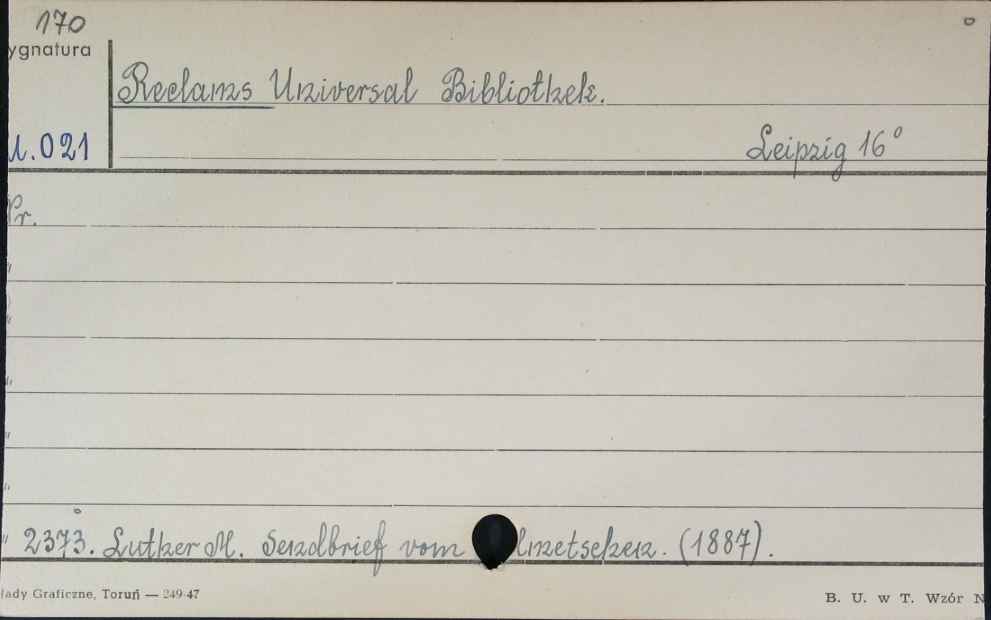 170
ygnatura
Reclams Universal Bibliothek.
021
Leipzig 16°
Pr.
"
"
"
"
"
" 2373. Luther M. Sendbrief vom lmetschen. (1887).
łady Graficzne, Toruń — 249-47
B. U. w T. Wzór N